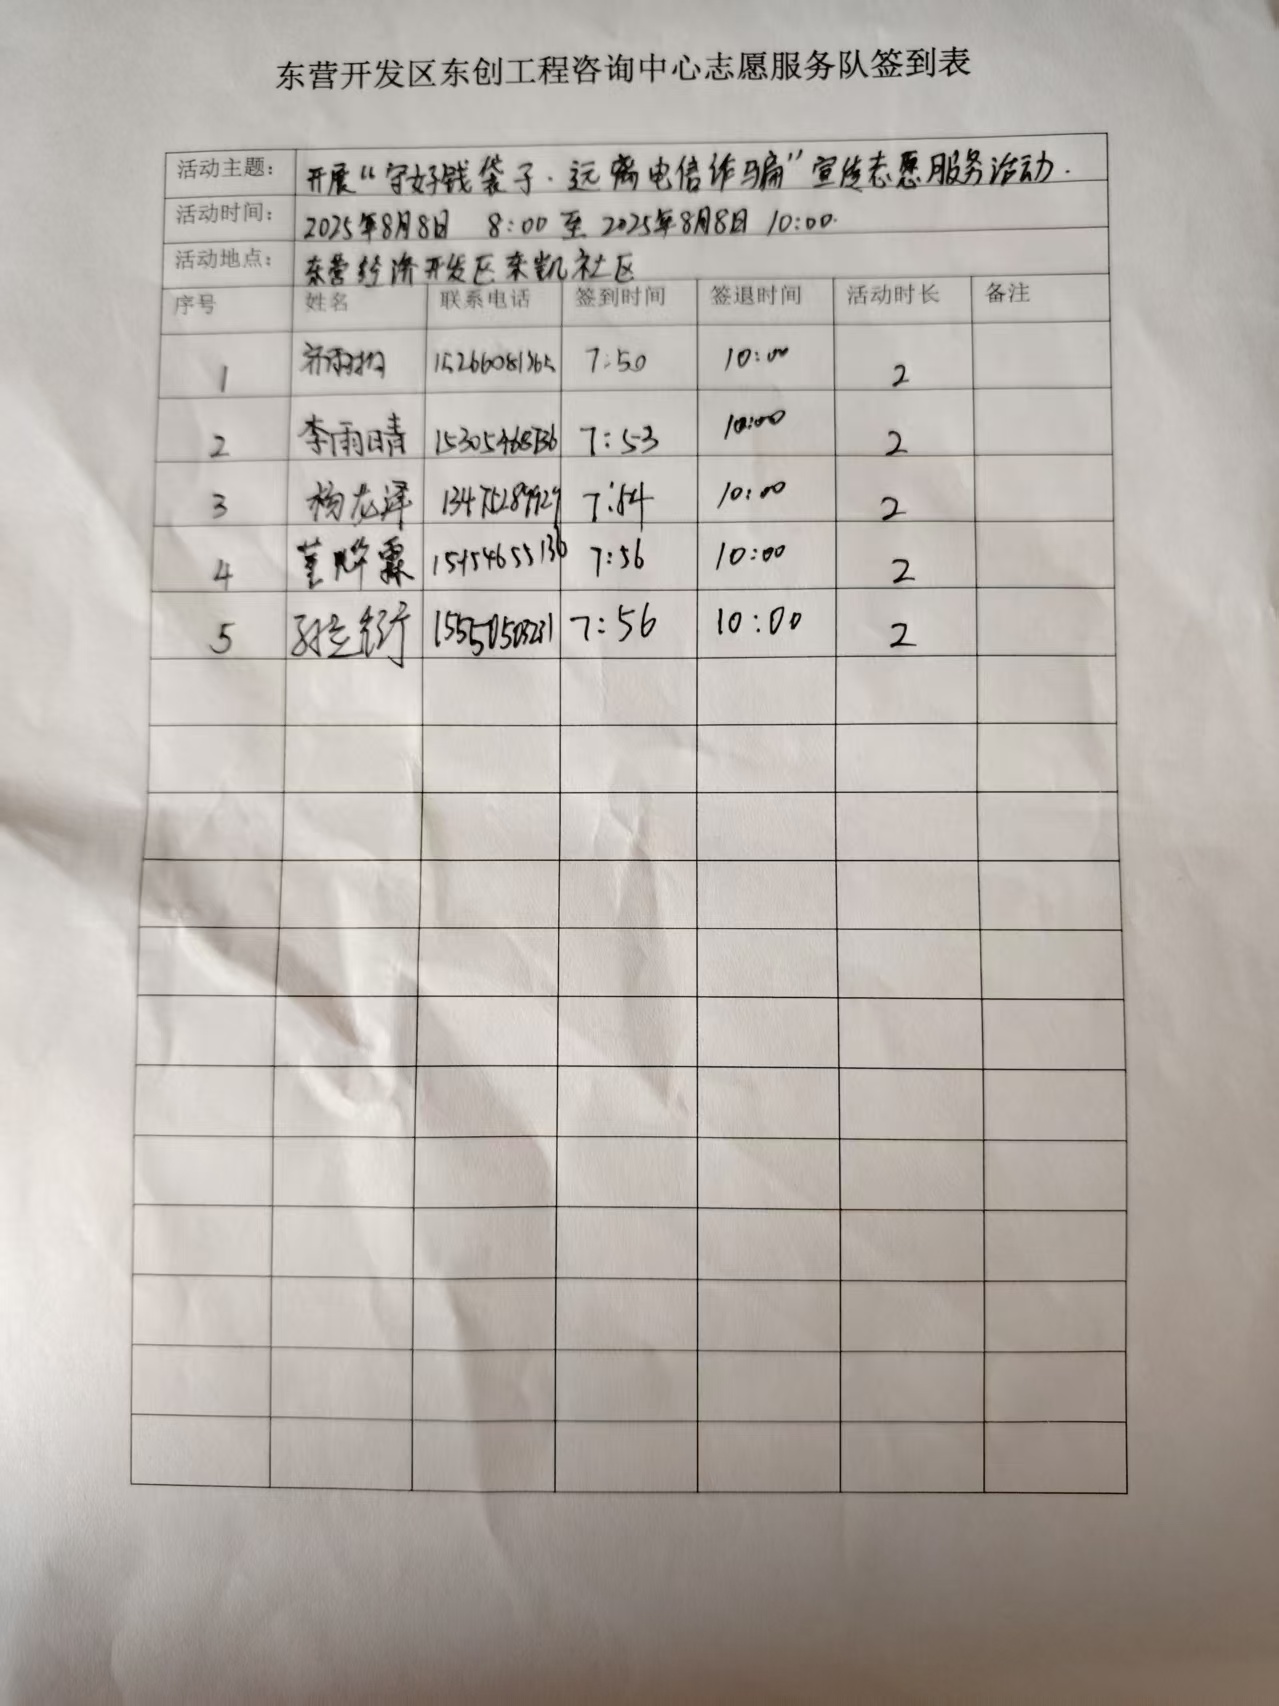 东营开发区东创工程咨询中心志愿服务队签到表
活动主题： 开展“守好钱袋子·远离电信诈骗”宣传志愿服务活动.
活动时间： 2025年8月8日 8:00 至 2025年8月8日 10:00.
活动地点： 东营经济开发区东凯社区
序号 姓名 联系电话 签到时间 签退时间 活动时长 备注
1 7:50 10:00 2
2 李雨晴 7:53 10:00 2
3 杨龙泽 13475289929 7:54 10:00 2
4 董晔霖 15154655136 7:56 10:00 2
5 7:56 10:00 2